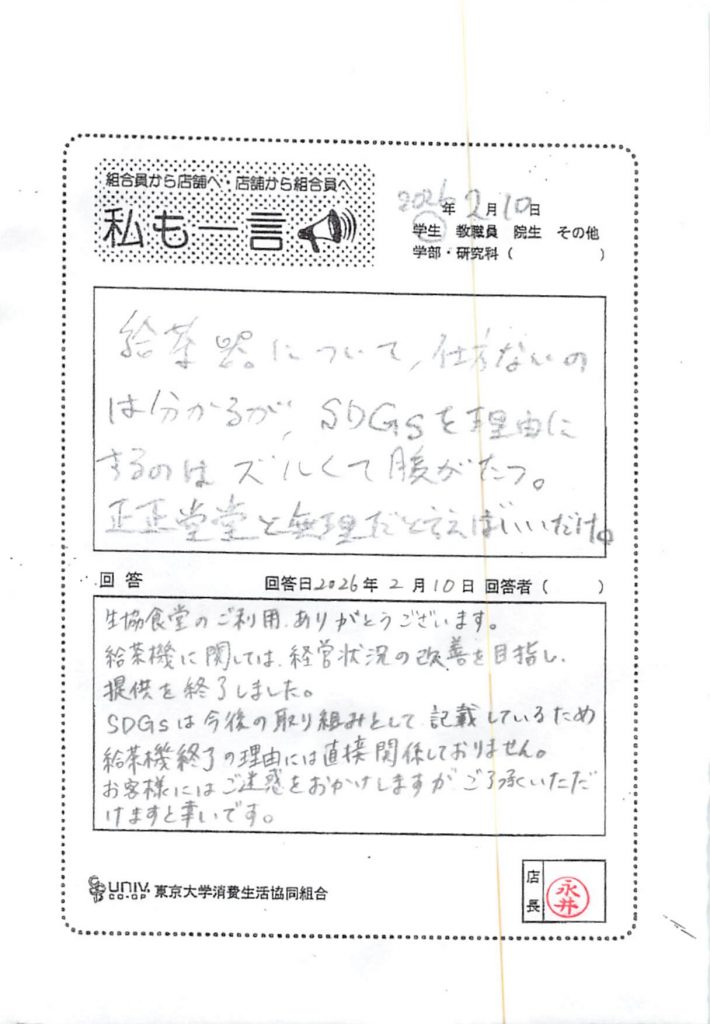 組合員から店舗へ・店舗から組合員へ
私も一言
2026年2月10日
学生 教職員 院生 その他
学部・研究科（ ）
給茶器について,仕方ないの
は分かるが,SDGsを理由に
するのはズルくて腹がたつ。
正正堂堂と無理だと言えばいいだけ。
回答 回答日2026年2月10日 回答者（ ）
生協食堂のご利用、ありがとうございます。
給茶機に関しては、経営状況の改善を目指し、
提供を終了しました。
SDGsは今後の取り組みとして記載しているため
給茶機終了の理由には直接関係しておりません。
お客様にはご迷惑をおかけしますがご了承いただ
けますと幸いです。
UNIV. CO-OP 東京大学消費生活協同組合
店長 永井